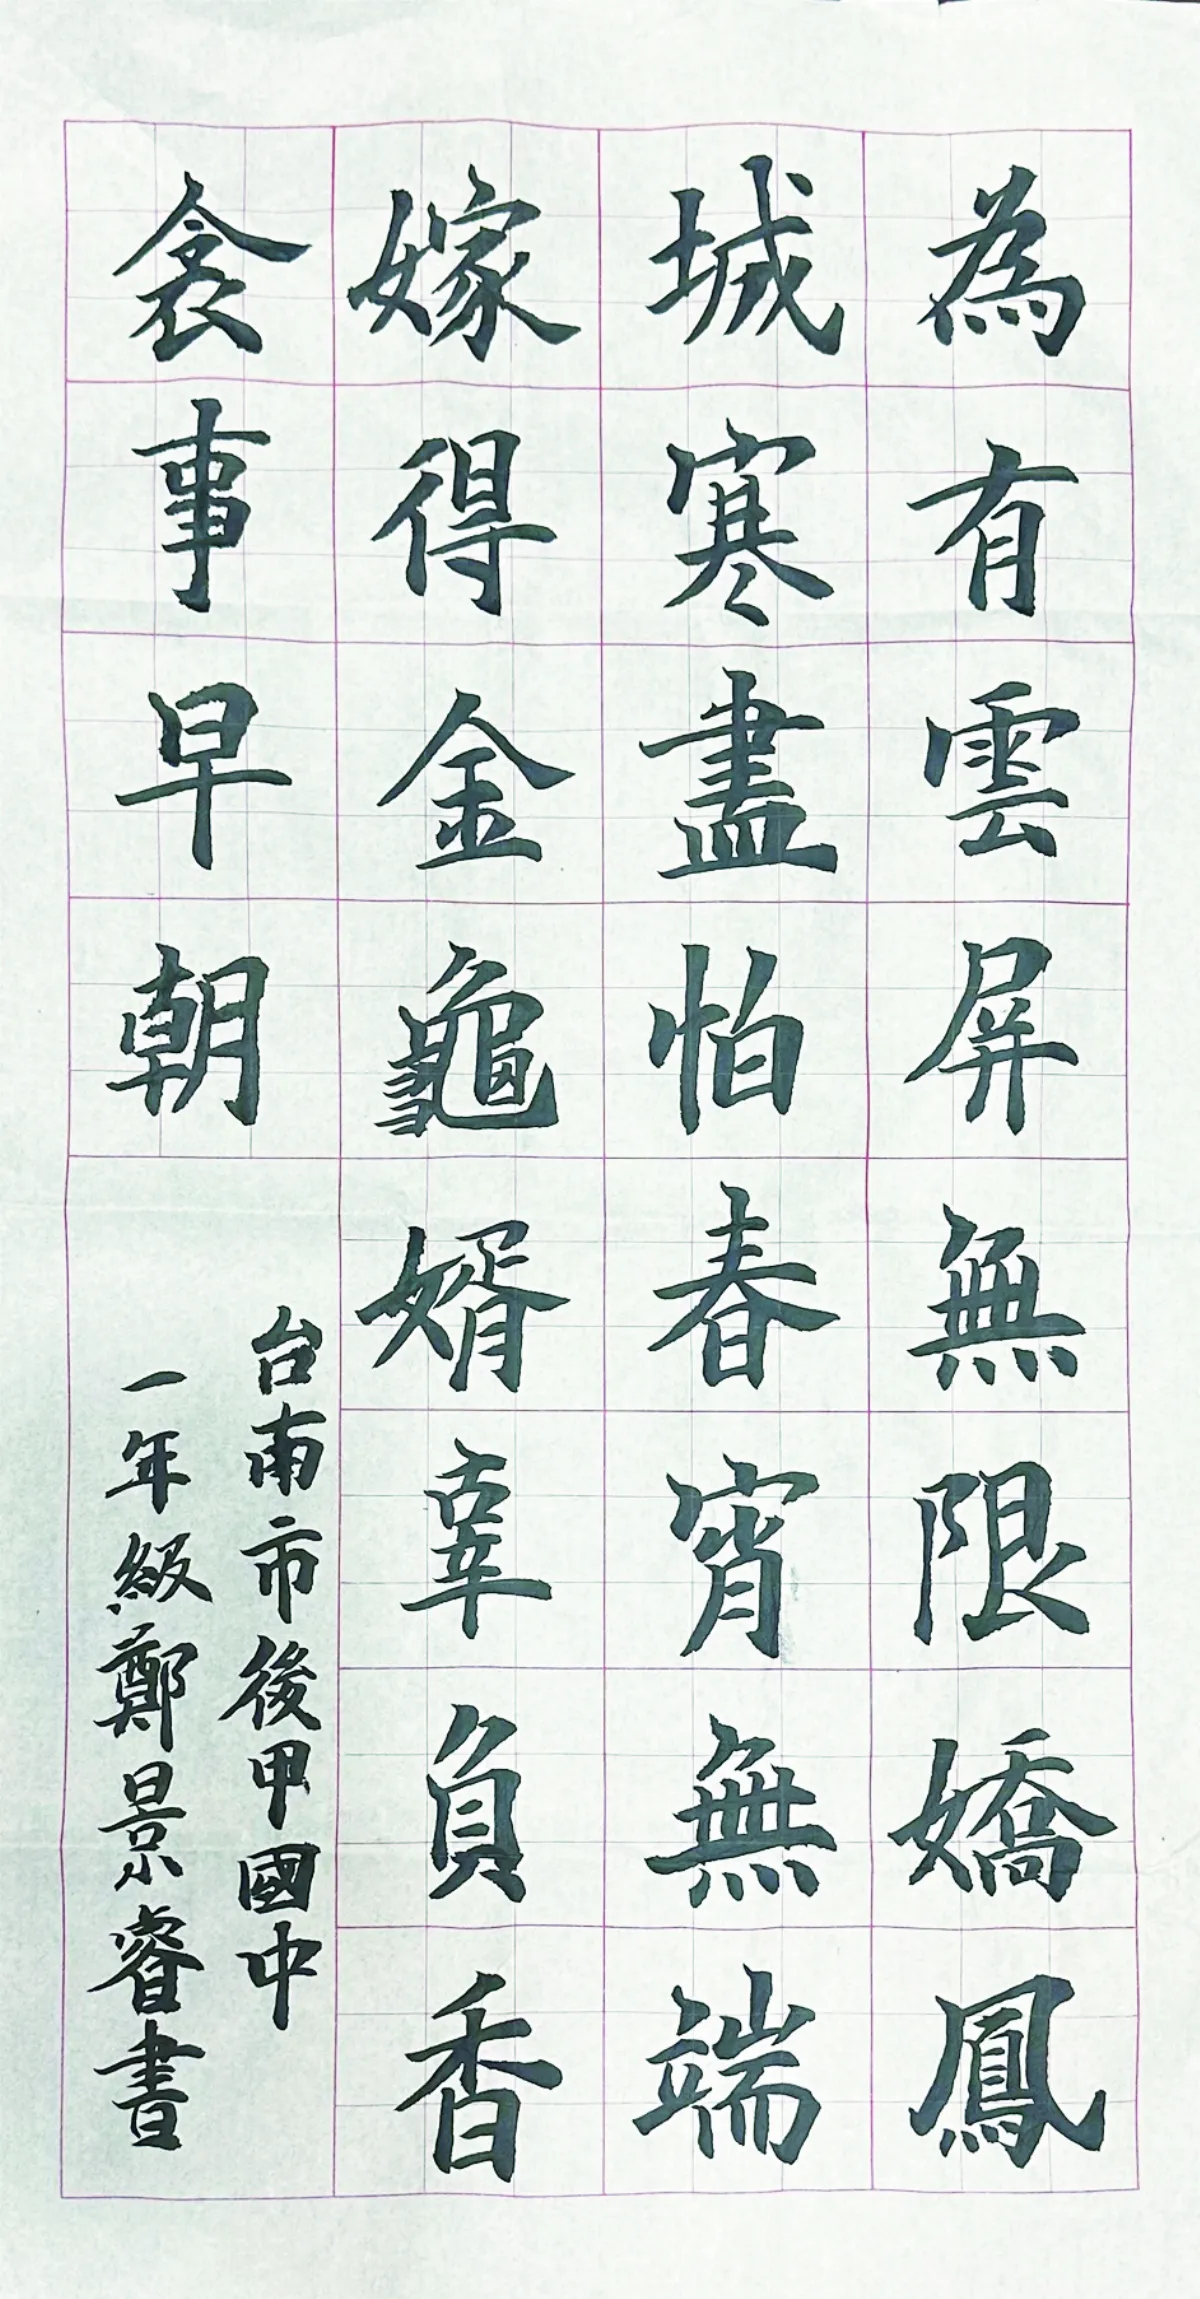 為有雲屏無限嬌鳳
城寒盡怕春宵無端
嫁得金龜婿辜負香
衾事早朝
台南市後甲國中
一年級鄭景睿書